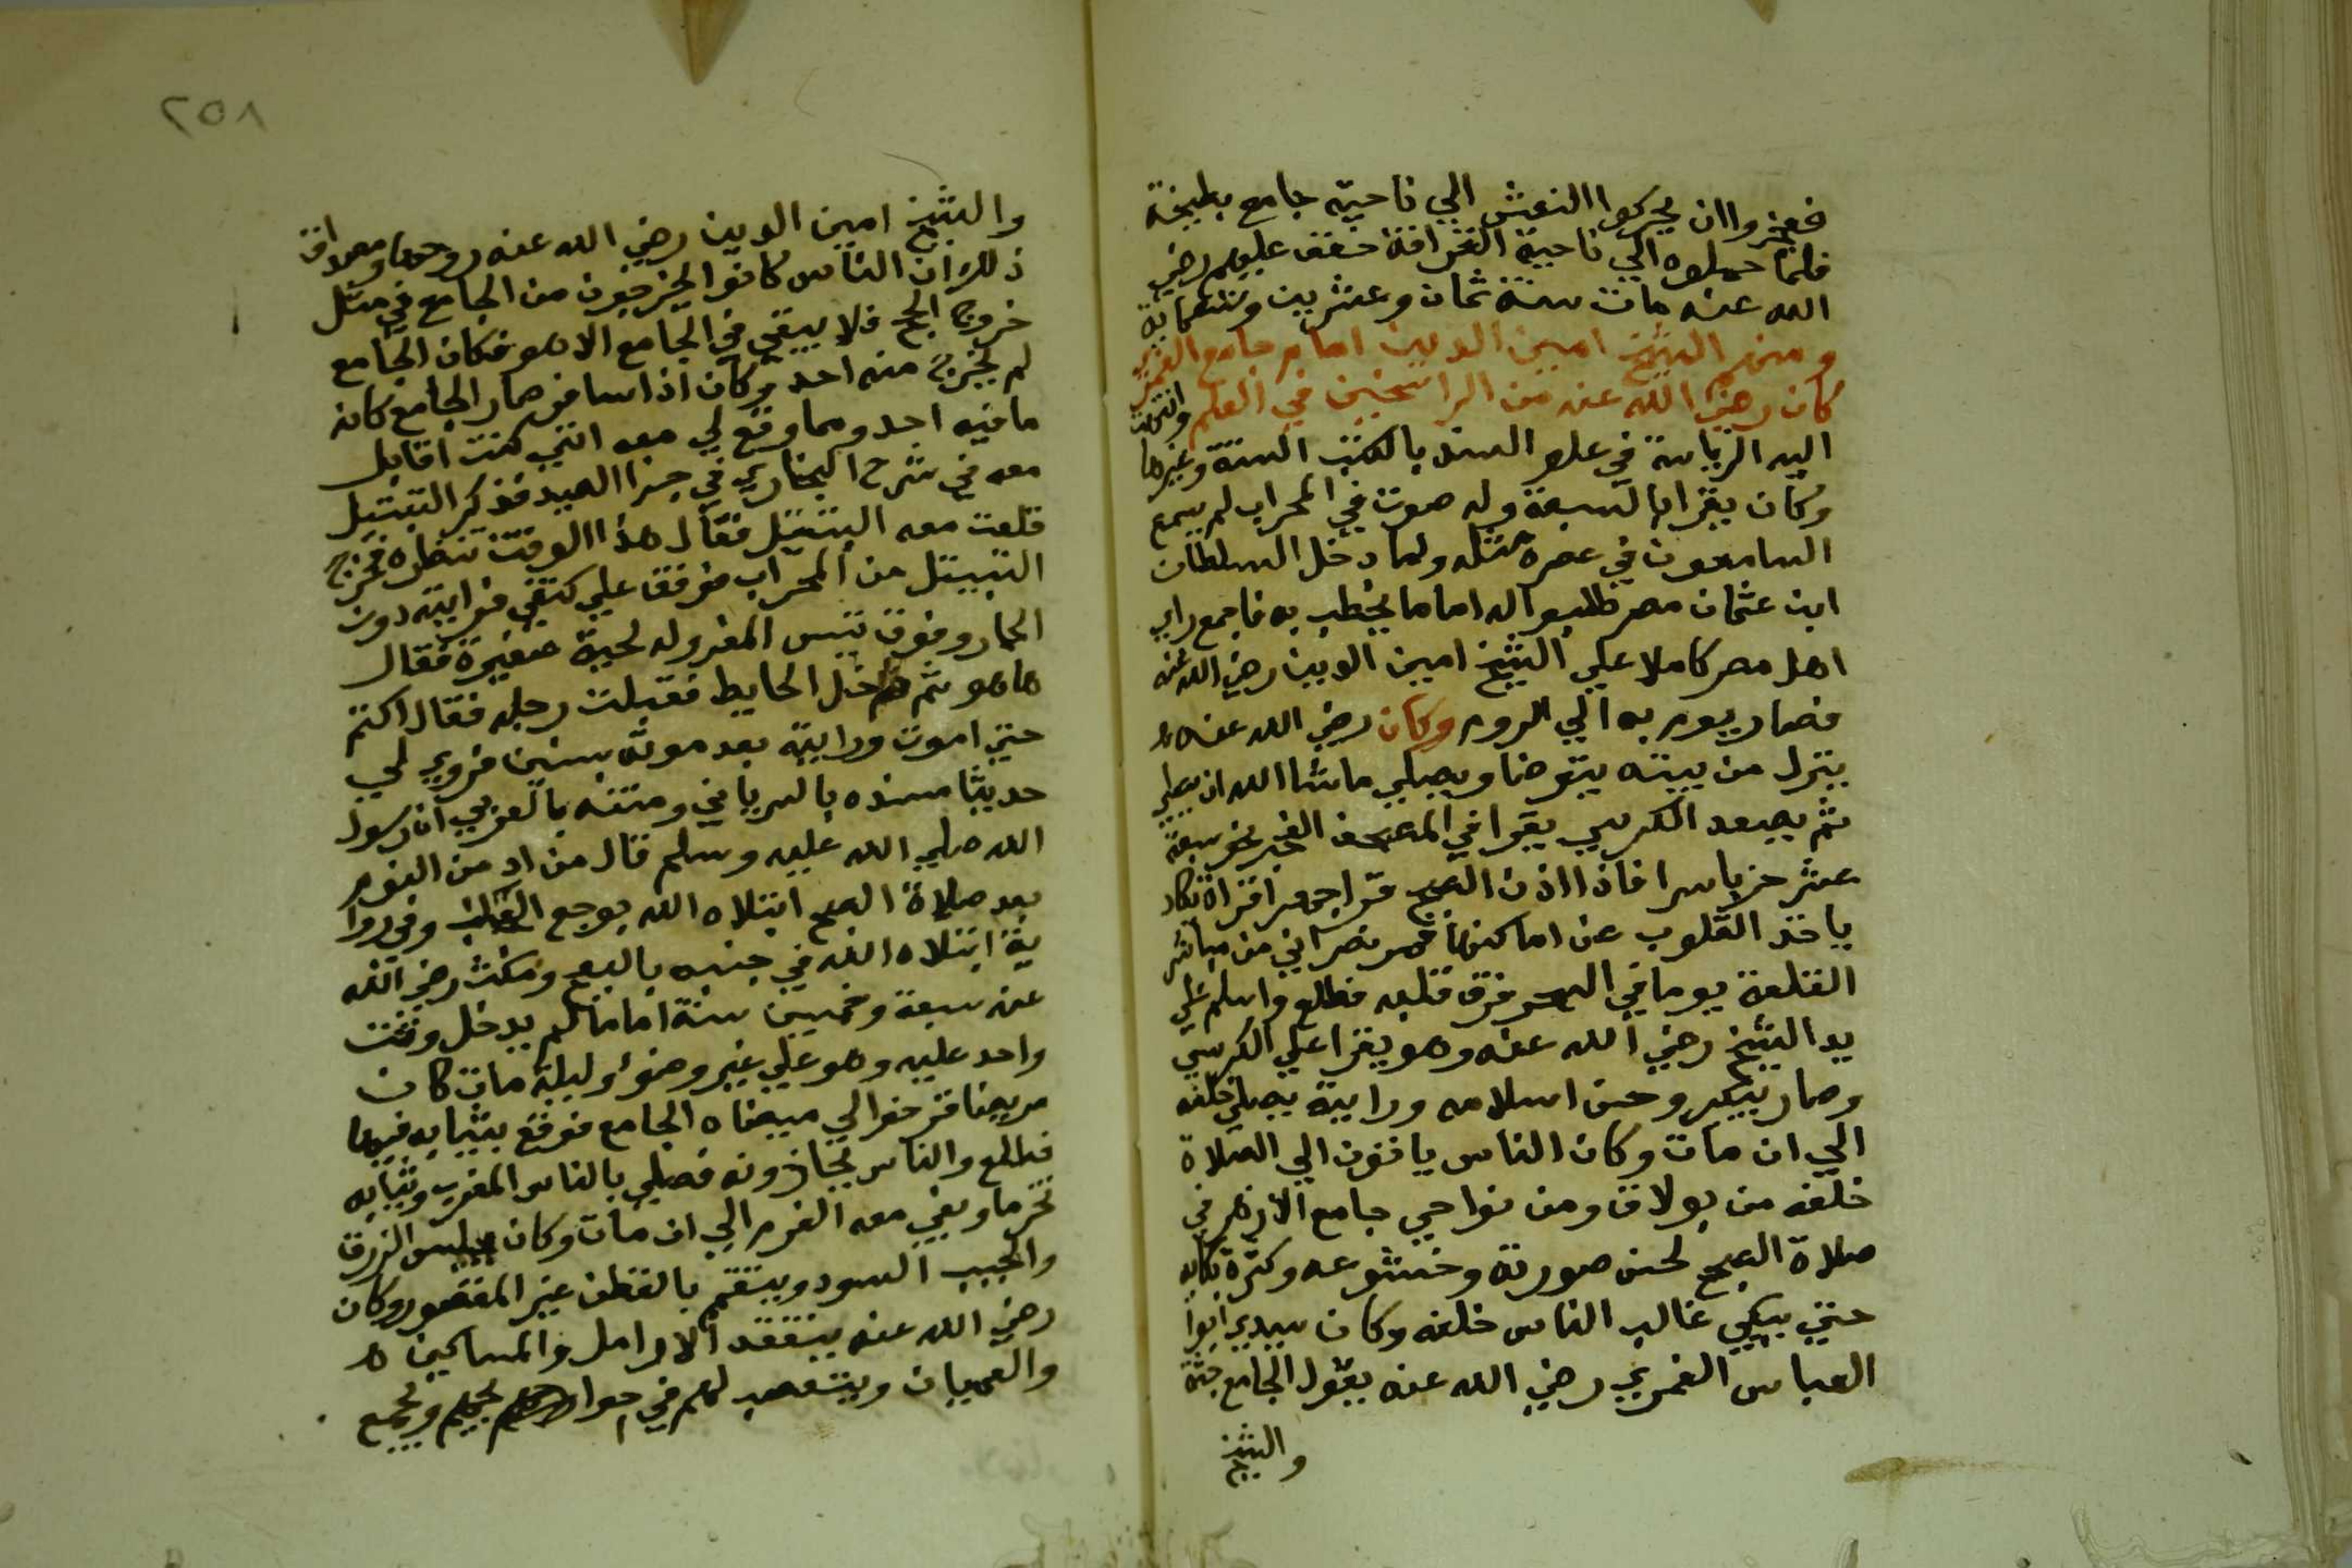 فعجزوا ان يحركوا النعش الي ناحية جامع بطيخة
فلما حملوه الي ناحية القرافة خفف عليهم رضي
الله عنه مات سنة ثمان وعشرين وتسعماية
ومنهم الشيخ امين الدين امام جامع الغمري
كان رضي الله عنه من الراسخين في العلم وانتهت
اليه الرياسة في علو السند بالكتب الستة وغيرها
وكان يقرا بالسبعة وله صوت في المحراب لم يسمع
السامعون في عصره مثله ولما دخل السلطان
ابن عثمان مصر طلبوا له اماما يخطب به فاجمع راي
اهل مصر كاملا علي الشيخ امين الدين رضي الله عنه
فصار يوم به الي الروم وكان رضي الله عنه ه
ينزل من بيته يتوضا ويصلي ماشا الله ان يصلي
ثم يصعد الكرسي يقرا في المصحف الفجر نحو سبعة
عشر حزبا سرا فاذا اذن الصبح قرا جهرا قراة تكاد
ياخذ القلوب عن اماكنها فمر نصراني من مباشر
القلعة يوما في السحر فرق قلبه فطلع واسلم علي
يد الشيخ رضي الله عنه وهو يقرا علي الكرسي
وصار يبكي وحسن اسلامه ورايته يصلي خلفه
الي ان مات وكان الناس ياتون الي الصلاة
خلفه من بولاق ومن نواحي جامع الازهر في
صلاة الصبح لحسن صورته وخشوعه وكثرة بكايه
حتي يبكي غالب الناس خلفه وكان سيدي ابوا
العباس الغمري رضي الله عنه يقول الجامع جثة
والشيخ
٢٥٨
والشيخ امين الدين رضي الله عنه روحها ومصداق
ذلك ان الناس كانوا يخرجون من الجامع في مثل
خروج الحج فلا يبقي في الجامع الا هو فكان الجامع
لم يخرج منه احد وكان اذا سافر صار الجامع كانه
ما فيه احد ومما وقع لي معه انني كنت اقابل
معه في شرح البخاري في جزا الصيد فذكر التيتل
فقلت معه التيتل فقال هذا الوقت تنظره فخرج
التيتل من المحراب فوقف علي كتفي فرايته دون
الحمار وفوق تيس المعز وله لحية صغيرة فقال
ها هو ثم دخل الحايط فقبلت رجله فقال اكتم
حتي اموت ورايته بعد موته بسنين فروي لي
حديثا سنده بالسرياني ومتنه بالعربي ان رسول
الله صلي الله عليه وسلم قال من ادمن النوم
بعد صلاة الصبح ابتلاه الله بوجع وفي روا
ية ابتلاه الله في جنبه بالبعج ومكث رضي الله
عنه سبعة وخمسين سنة اماما لم يدخل وقت
واحد عليه وهو علي غير وضوء وليلة مات كان
مريضا فزحف الي ميضاه الجامع فوقع بثيابه فيها
فطلع والناس يحاذونه فصلي بالناس المغرب وثيابه
تخر ما وبقي معه العزم الي ان مات وكان يلبس الزرق
والجبب السود ويتعمم بالقطن غير المقصور وكان
رضي الله عنه يتفقد الارامل والمساكين ه
والعميان ويتعصب لهم في ويجمع